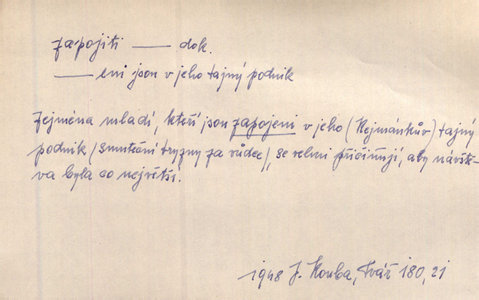 zapojiti —— dok.
—— eni jsou v jeho tajný podnik
Zejména mladí, kteří jsou zapojeni v jeho (Hejmánkův) tajný
podnik (smuteční tryzny za vůdce), se velmi přičiňují, aby návště-
va byla co největší.
1948 J. Kouba, Tvář 180, 21